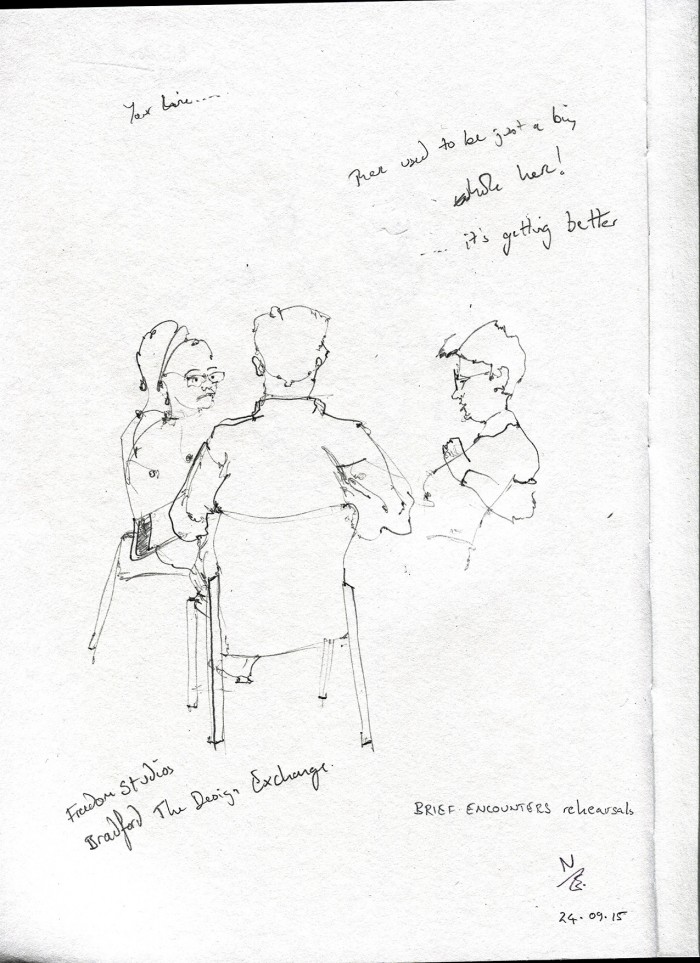 Your line.....
There used to be just a big
whole here!
.... it's getting better
Freedom Studios
Bradford The Design Exchange.
BRIEF ENCOUNTERS rehearsals
N
24.09.15